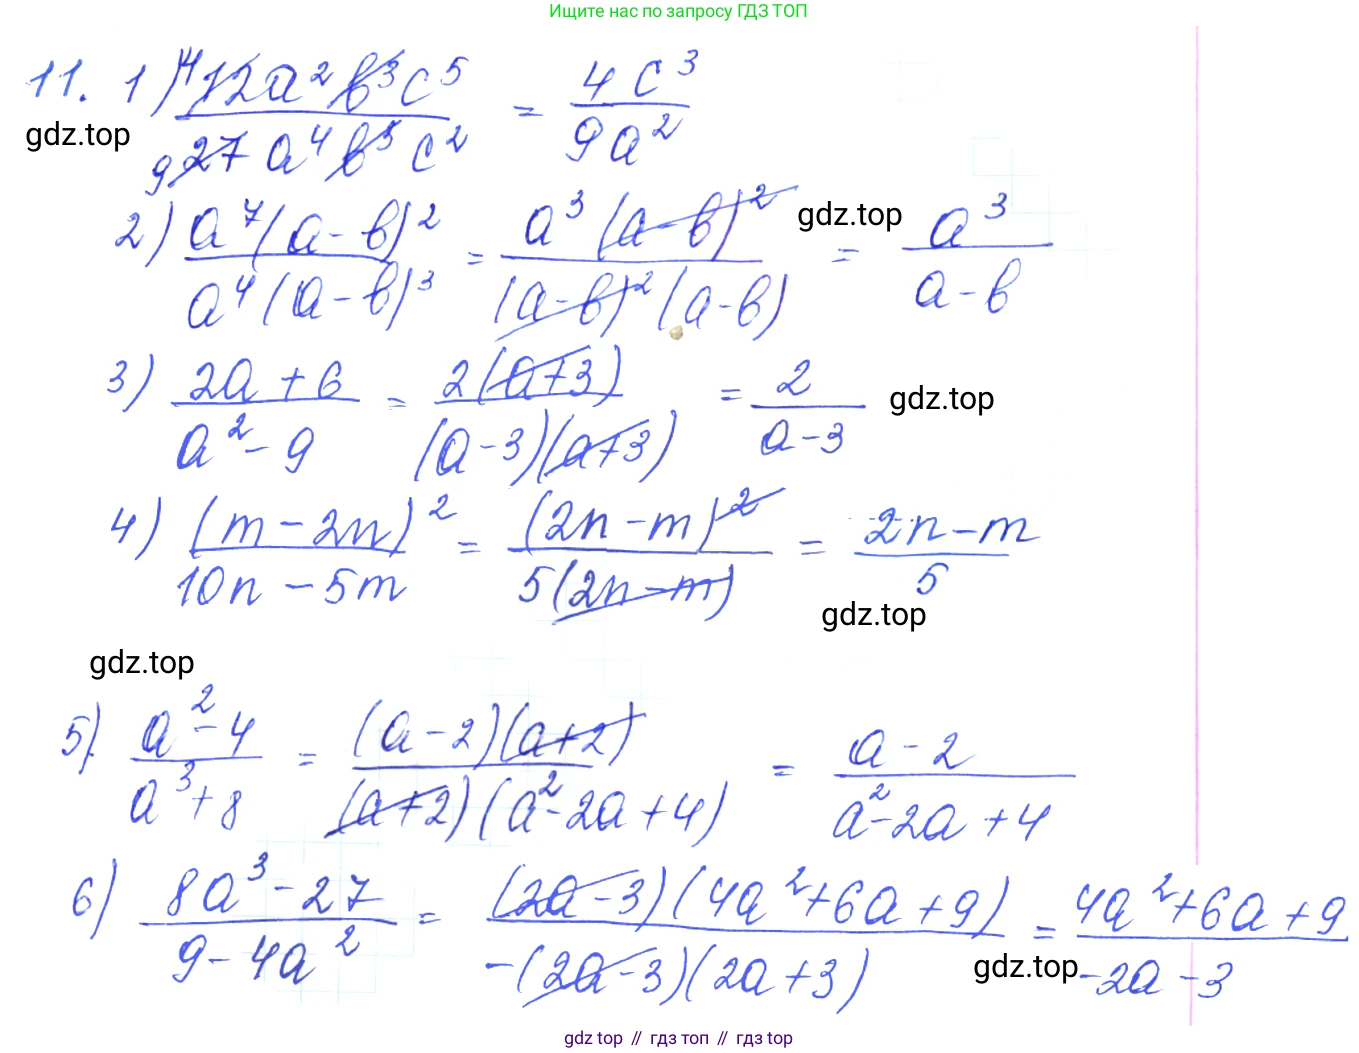 Ищите нас по запросу ГДЗ ТОП
11. 1) ⁴12a²b³c⁵ / ₉27a⁴b³c² = 4c³ / 9a²
gdz.top
2) a⁷(a-b)² / a⁴(a-b)³ = a³(a-b)² / (a-b)²(a-b) = a³ / a-b
gdz.top
3) 2a+6 / a²-9 = 2(a+3) / (a-3)(a+3) = 2 / a-3
gdz.top
4) (m-2n)² / 10n-5m = (2n-m)² / 5(2n-m) = 2n-m / 5
gdz.top
gdz.top
5) a²-4 / a³+8 = (a-2)(a+2) / (a+2)(a²-2a+4) = a-2 / a²-2a+4
6) 8a³-27 / 9-4a² = (2a-3)(4a²+6a+9) / -(2a-3)(2a+3) = 4a²+6a+9 / -2a-3
gdz.top
gdz top // гдз топ // gdz top